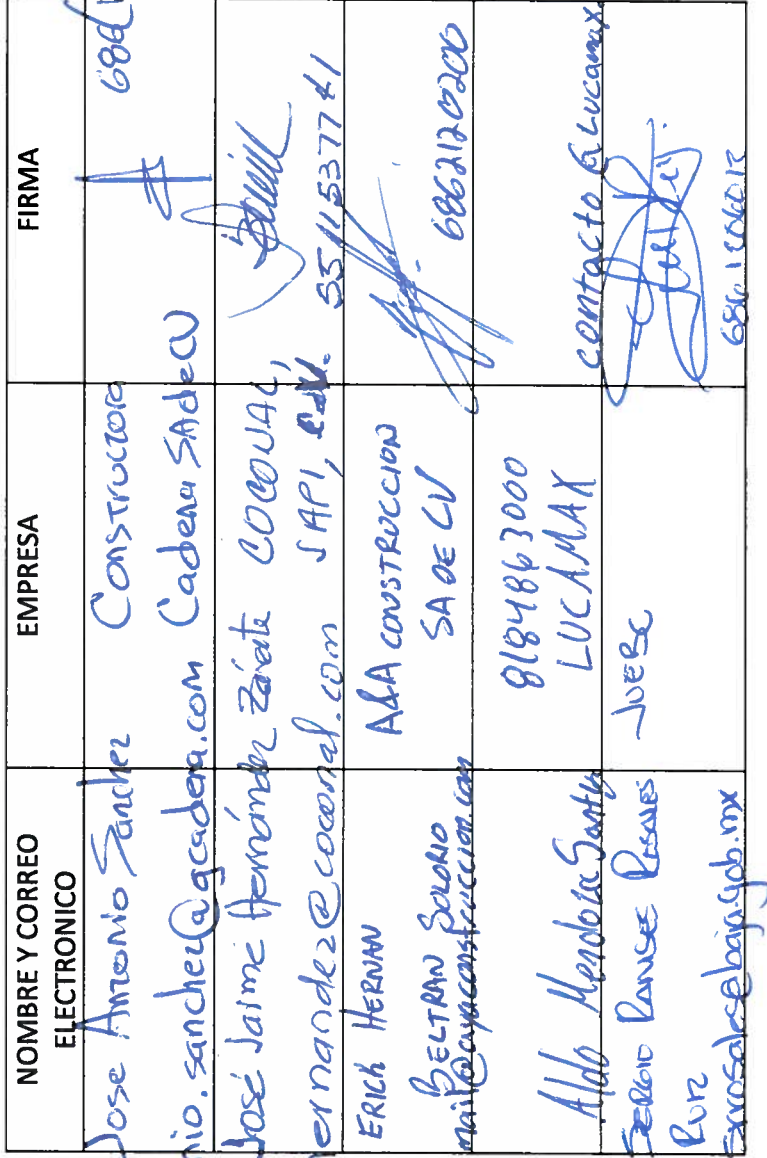 NOMBRE Y CORREO
ELECTRONICO
EMPRESA
FIRMA
Jose Antonio Sanchez
Constructora
686
nio.sanchez@gcadena.com
Cadena SA de CV
José Jaime Hernández Zárate
COCONAL,
ernandez@coconal.com
SAPI,
5511537741
ERICK HERNAN
BELTRAN SOLORIO
mail@ayaconstruccion.com
A&A CONSTRUCCION
SA DE CV
6862120200
Aldo Mendoza Santy
8184863000
LUCAMAX
contacto@lucamax.
SERGIO RANGEL ROSALES
RUIZ
srrosales@baja.gob.mx
JUEBC